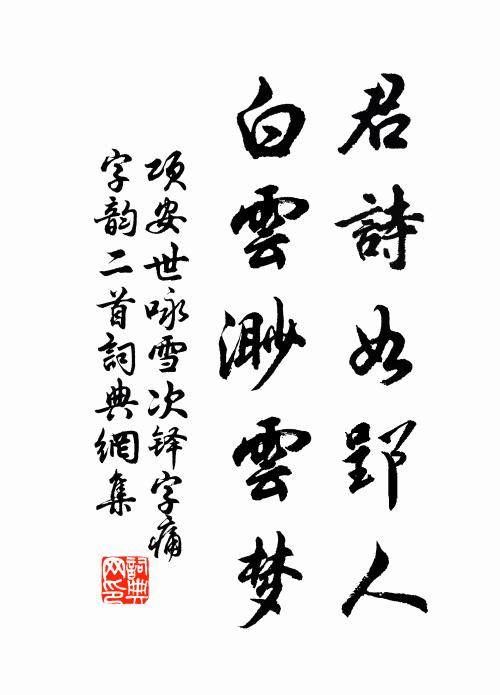 君詩如郢人
白雲渺雲梦
项安世咏雪次铎字痛
字韵二首詞典網集
詞典网印